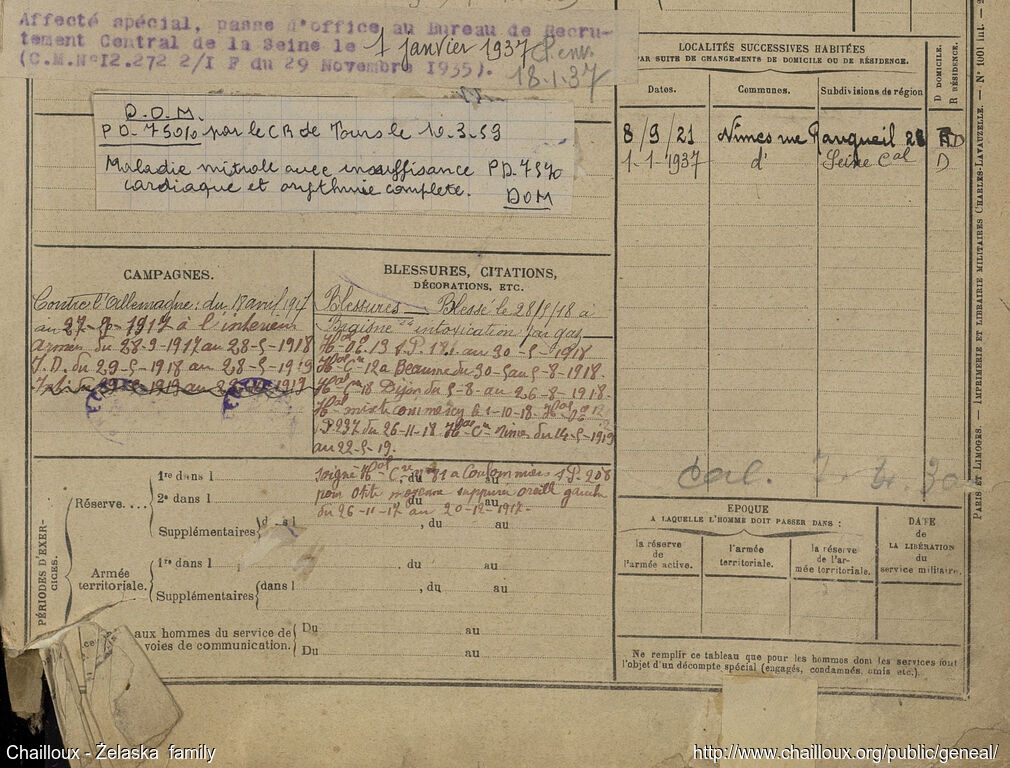 Affecté spécial, passe d'office au Bureau de Recru-
tement Central de la Seine le 1 janvier 1937
(C.M.N°I2.272 2/I F du 29 Novembre I935).
18-1-37
D.O.M.
P D. 75 0/0 par le CR de Tours le 10.3.59
Maladie mitrale avec insuffisance P D. 75 %
cardiaque et arythmie complete.
DOM
LOCALITÉS SUCCESSIVES HABITÉES
PAR SUITE DE CHANGEMENTS DE DOMICILE OU DE RÉSIDENCE.
D DOMICILE.
R RÉSIDENCE.
Dates.
Communes.
Subdivisions de région
8/9/21 Nîmes rue 28 D
1-1-1937 d° Seine Cal D
CAMPAGNES.
Contre l'Allemagne: du 18 avril 1917
au 27-9-1917 à l'intérieur
armées du 28-9-1917 au 28-5-1918
I.D. du 29-5-1918 au 28-5-1919
BLESSURES, CITATIONS,
DÉCORATIONS, ETC.
Blessures — Blessé le 28/5/18 à
intoxication par gaz
au 30-5-1918
Hal Cre 12 à Beaune du 30-5 au 5-8-1918.
Hal Cre 18 Dijon du 5-8- au 26-8-1918.
Hal mixte commercy le 1-10-18
S.P 237 du 26-11-18 Hal Cre Nimes du 14-5-1919
au 22-5-19.
soigné Hal Cre 81 à Coulommiers S.P. 208
pour otite moyenne suppurée oreille gauche
du 26-11-17 au 20-12-1917.
PÉRIODES D'EXER-
CICES.
Réserve. . . .
1re dans l , du au
2e dans l , du au
Supplémentaires d l , du au
Armée
territoriale.
1re dans l , du au
Supplémentaires dans l , du au
aux hommes du service de
voies de communication.
Du au
Du au
Cal. 7.
EPOQUE
A LAQUELLE L'HOMME DOIT PASSER DANS :
la réserve
de
l'armée active.
l'armée
territoriale.
la réserve
de l'ar-
mée territoriale.
DATE
de
LA LIBÉRATION
du
service militaire.
Ne remplir ce tableau que pour les hommes dont les services font
l'objet d'un décompte spécial (engagés, condamnés, omis etc.).
PARIS ET LIMOGES. — IMPRIMERIE ET LIBRAIRIE MILITAIRES CHARLES-LAVAUZELLE. — N° 1001 int
Chailloux - Želaska family
http://www.chailloux.org/public/geneal/